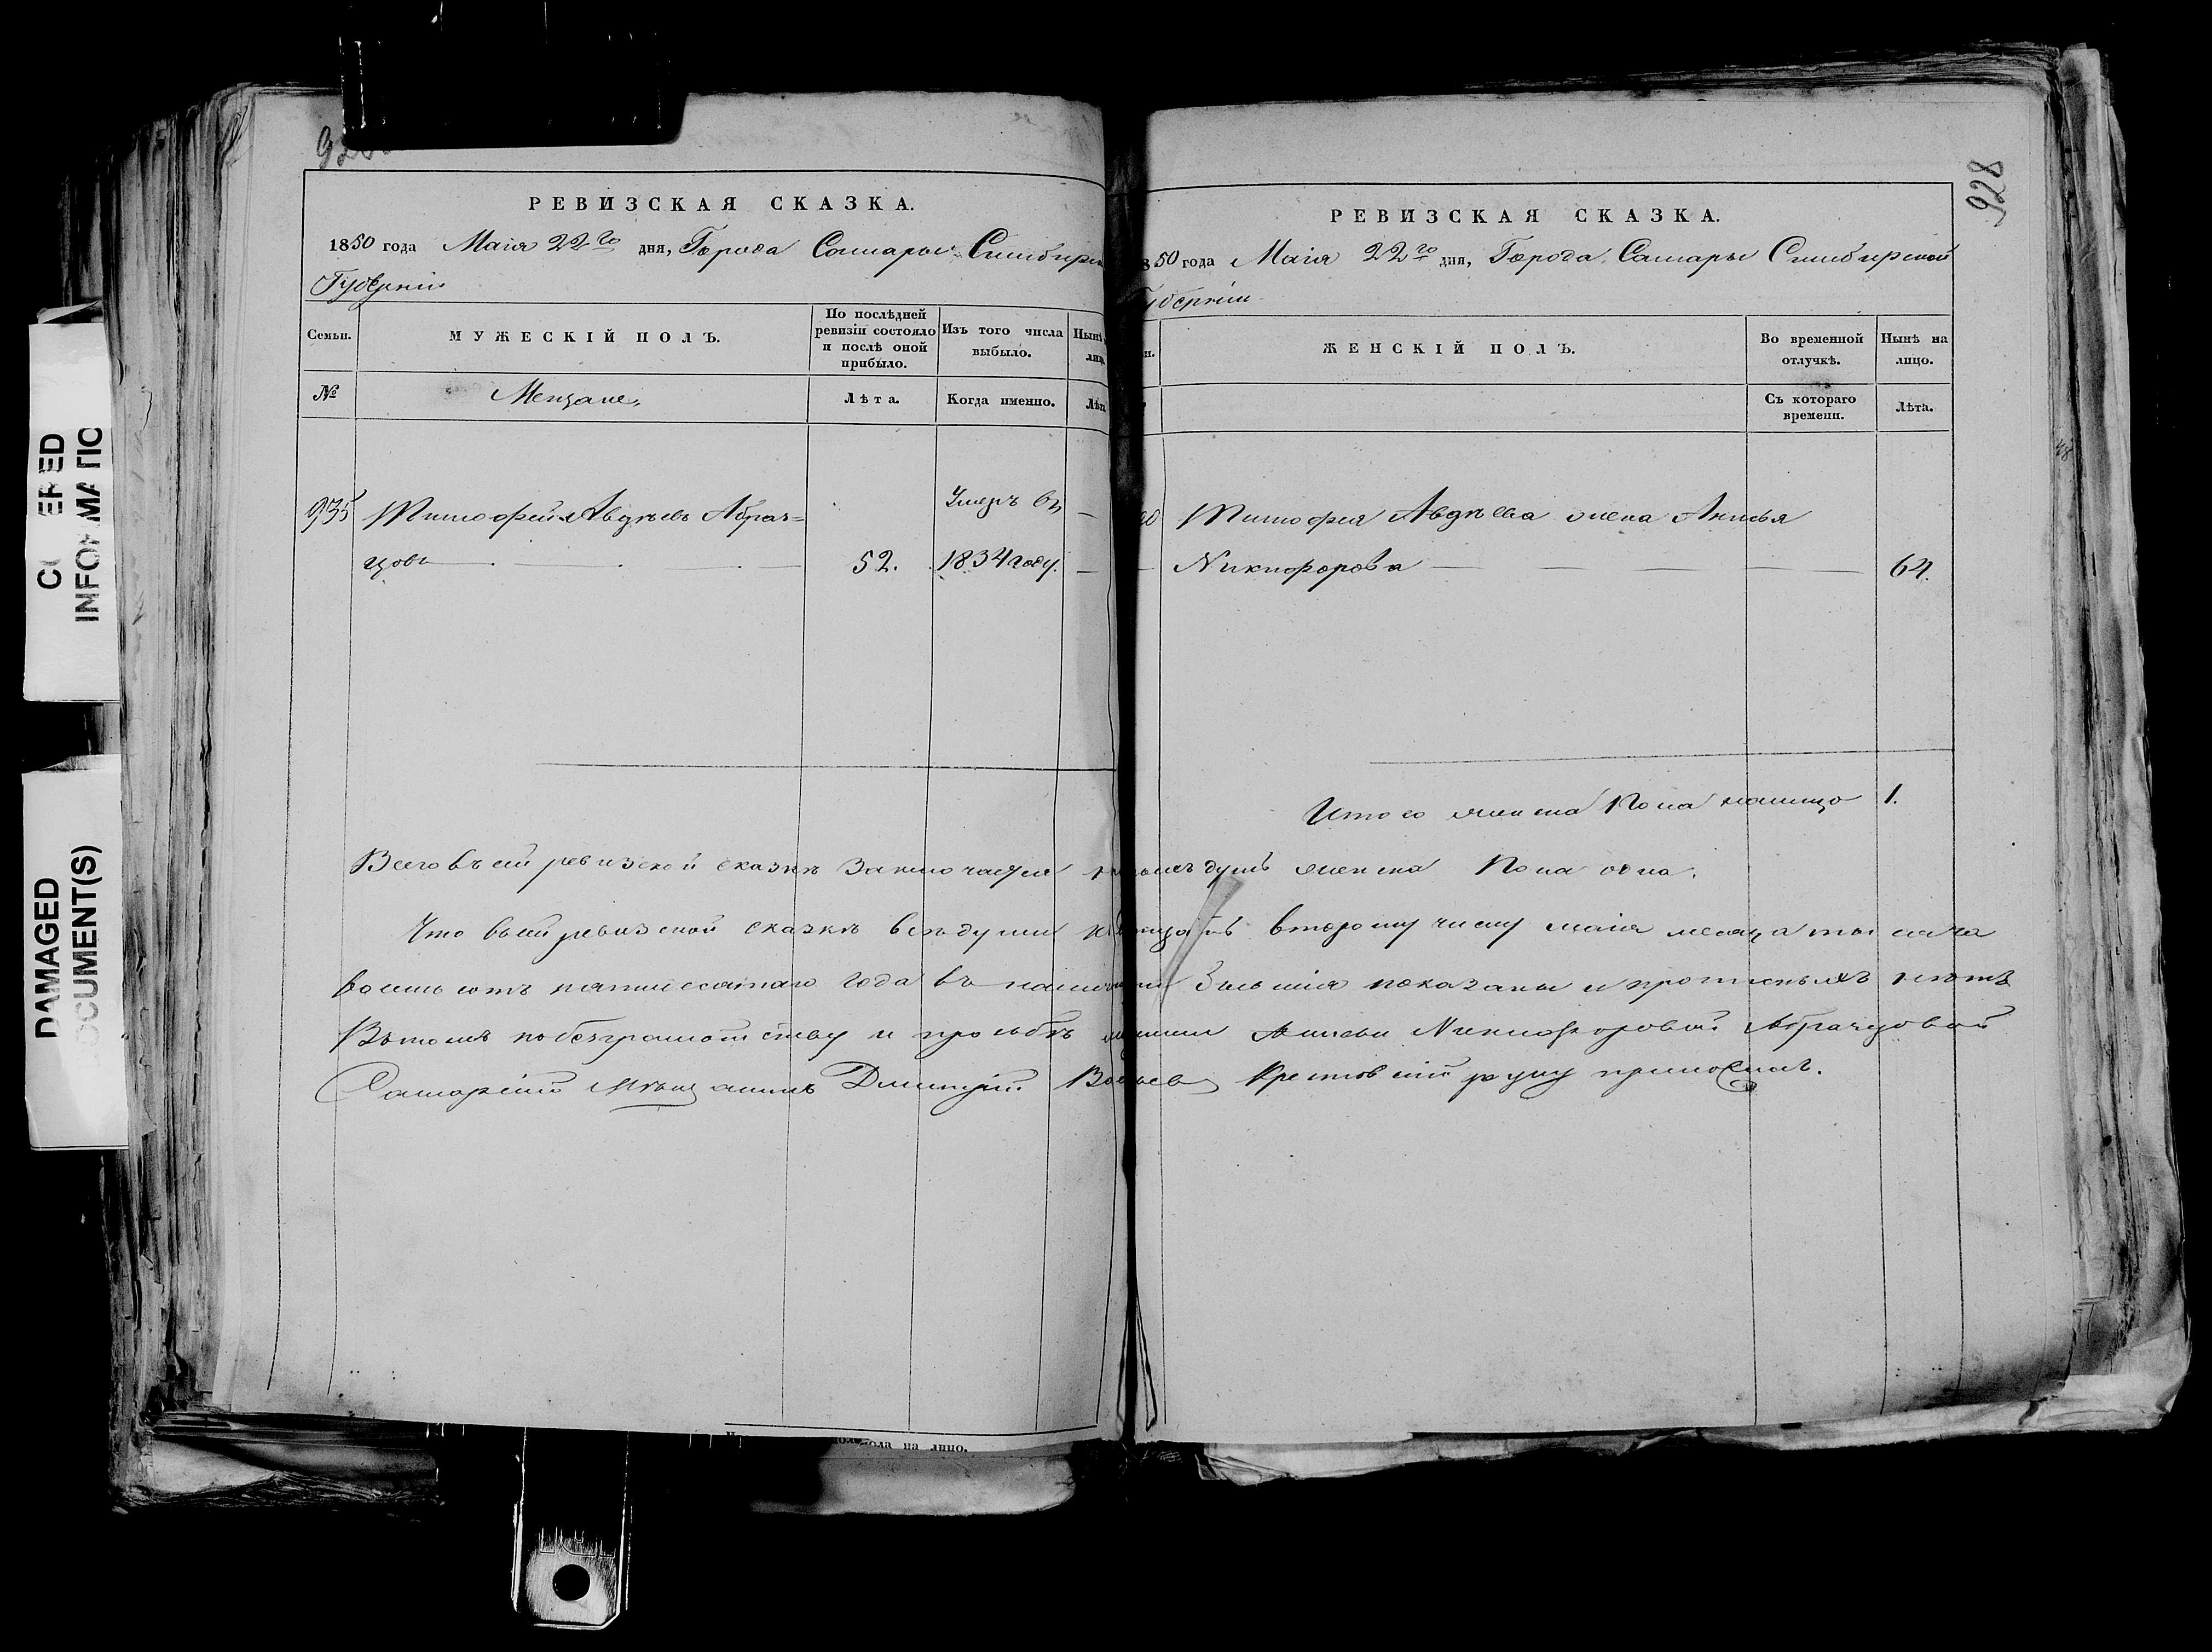 928
РЕВИЗСКАЯ СКАЗКА.
1850 года Маія 22го дня, Города Самары Симбирс
Губерніи
Семьи.
МУЖЕСКІЙ ПОЛЪ.
По послѣдней ревизіи состояло и послѣ оной прибыло.
Изъ того числа выбыло.
Нынѣ
лиц
№
Мещане,
Лѣта.
Когда именно.
Лѣта
935 Тимофей Авдѣевъ Абраз=
цовъ 52.
Умеръ въ
1834 году.
РЕВИЗСКАЯ СКАЗКА.
850 года Маія 22го дня, Города Самары Симбирской
Губерніи
ЖЕНСКІЙ ПОЛЪ.
Во временной отлучкѣ.
Нынѣ на лицо.
Съ котораго времени.
Лѣта.
Тимофея Авдѣева жена Анисья
Никифорова 64.
Итого женска пола налицо 1.
Всего въ сей ревизской сказкѣ заключается душъ женска пола одна.
Что въ сей ревизской сказкѣ всѣ души второму числу маія месяца тысяча
восемь сотъ пятидесятаго года въ показаны и прописныхъ нѣтъ
Въ томъ по безграмотству и прозьбѣ Анисьи Никифоровой Абразцовой
Самарскій мѣщанинъ Дмитрій руку приложилъ.
пола на лицо.
DAMAGED
DOCUMENT(S)
INFORMATIO